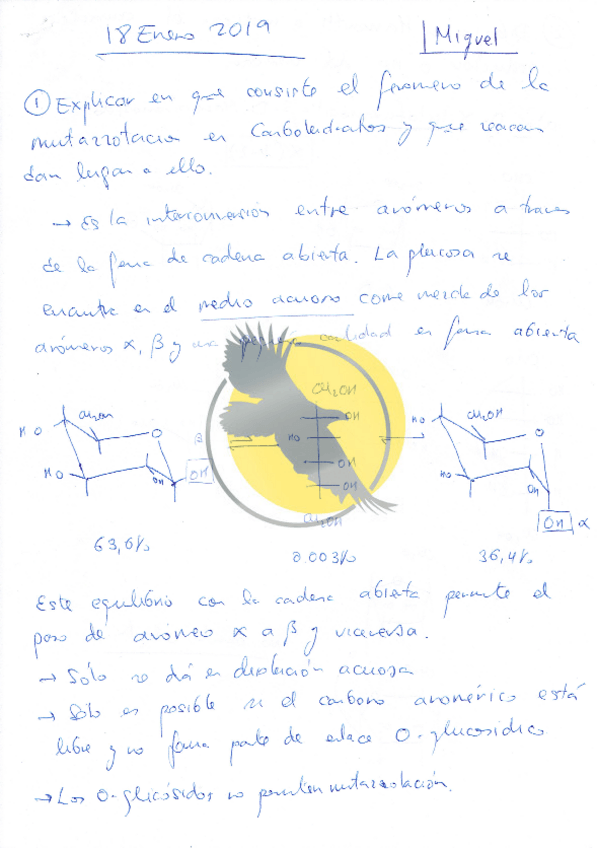 18 Enero 2019
Miguel
① Explicar en que consiste el fenomeno de la
mutarrotacion en Carbohidratos y que reaccion
dan lugar a ello.
→ Es la interconversión entre anómeros a traves
de la forma de cadena abierta. La glucosa se
encuentra en el medio acuoso como mezcla de los
anómeros α, β y una pequeña cantidad en forma abierta
CH₂OH
HO CH₂OH O β OH HO CH₂OH O
HO OH OH HO OH
OH
OH
CH₂OH OH α
63,6% 0.003% 36,4%
Este equilibrio con la cadena abierta permite el
paso de anómero α a β y viceversa.
→ Sólo se dá en disolución acuosa
→ Sólo es posible si el carbono anomérico está
libre y no forma parte de enlace O-glucosídico
→ Los O-glicósidos no permiten mutarrotación.